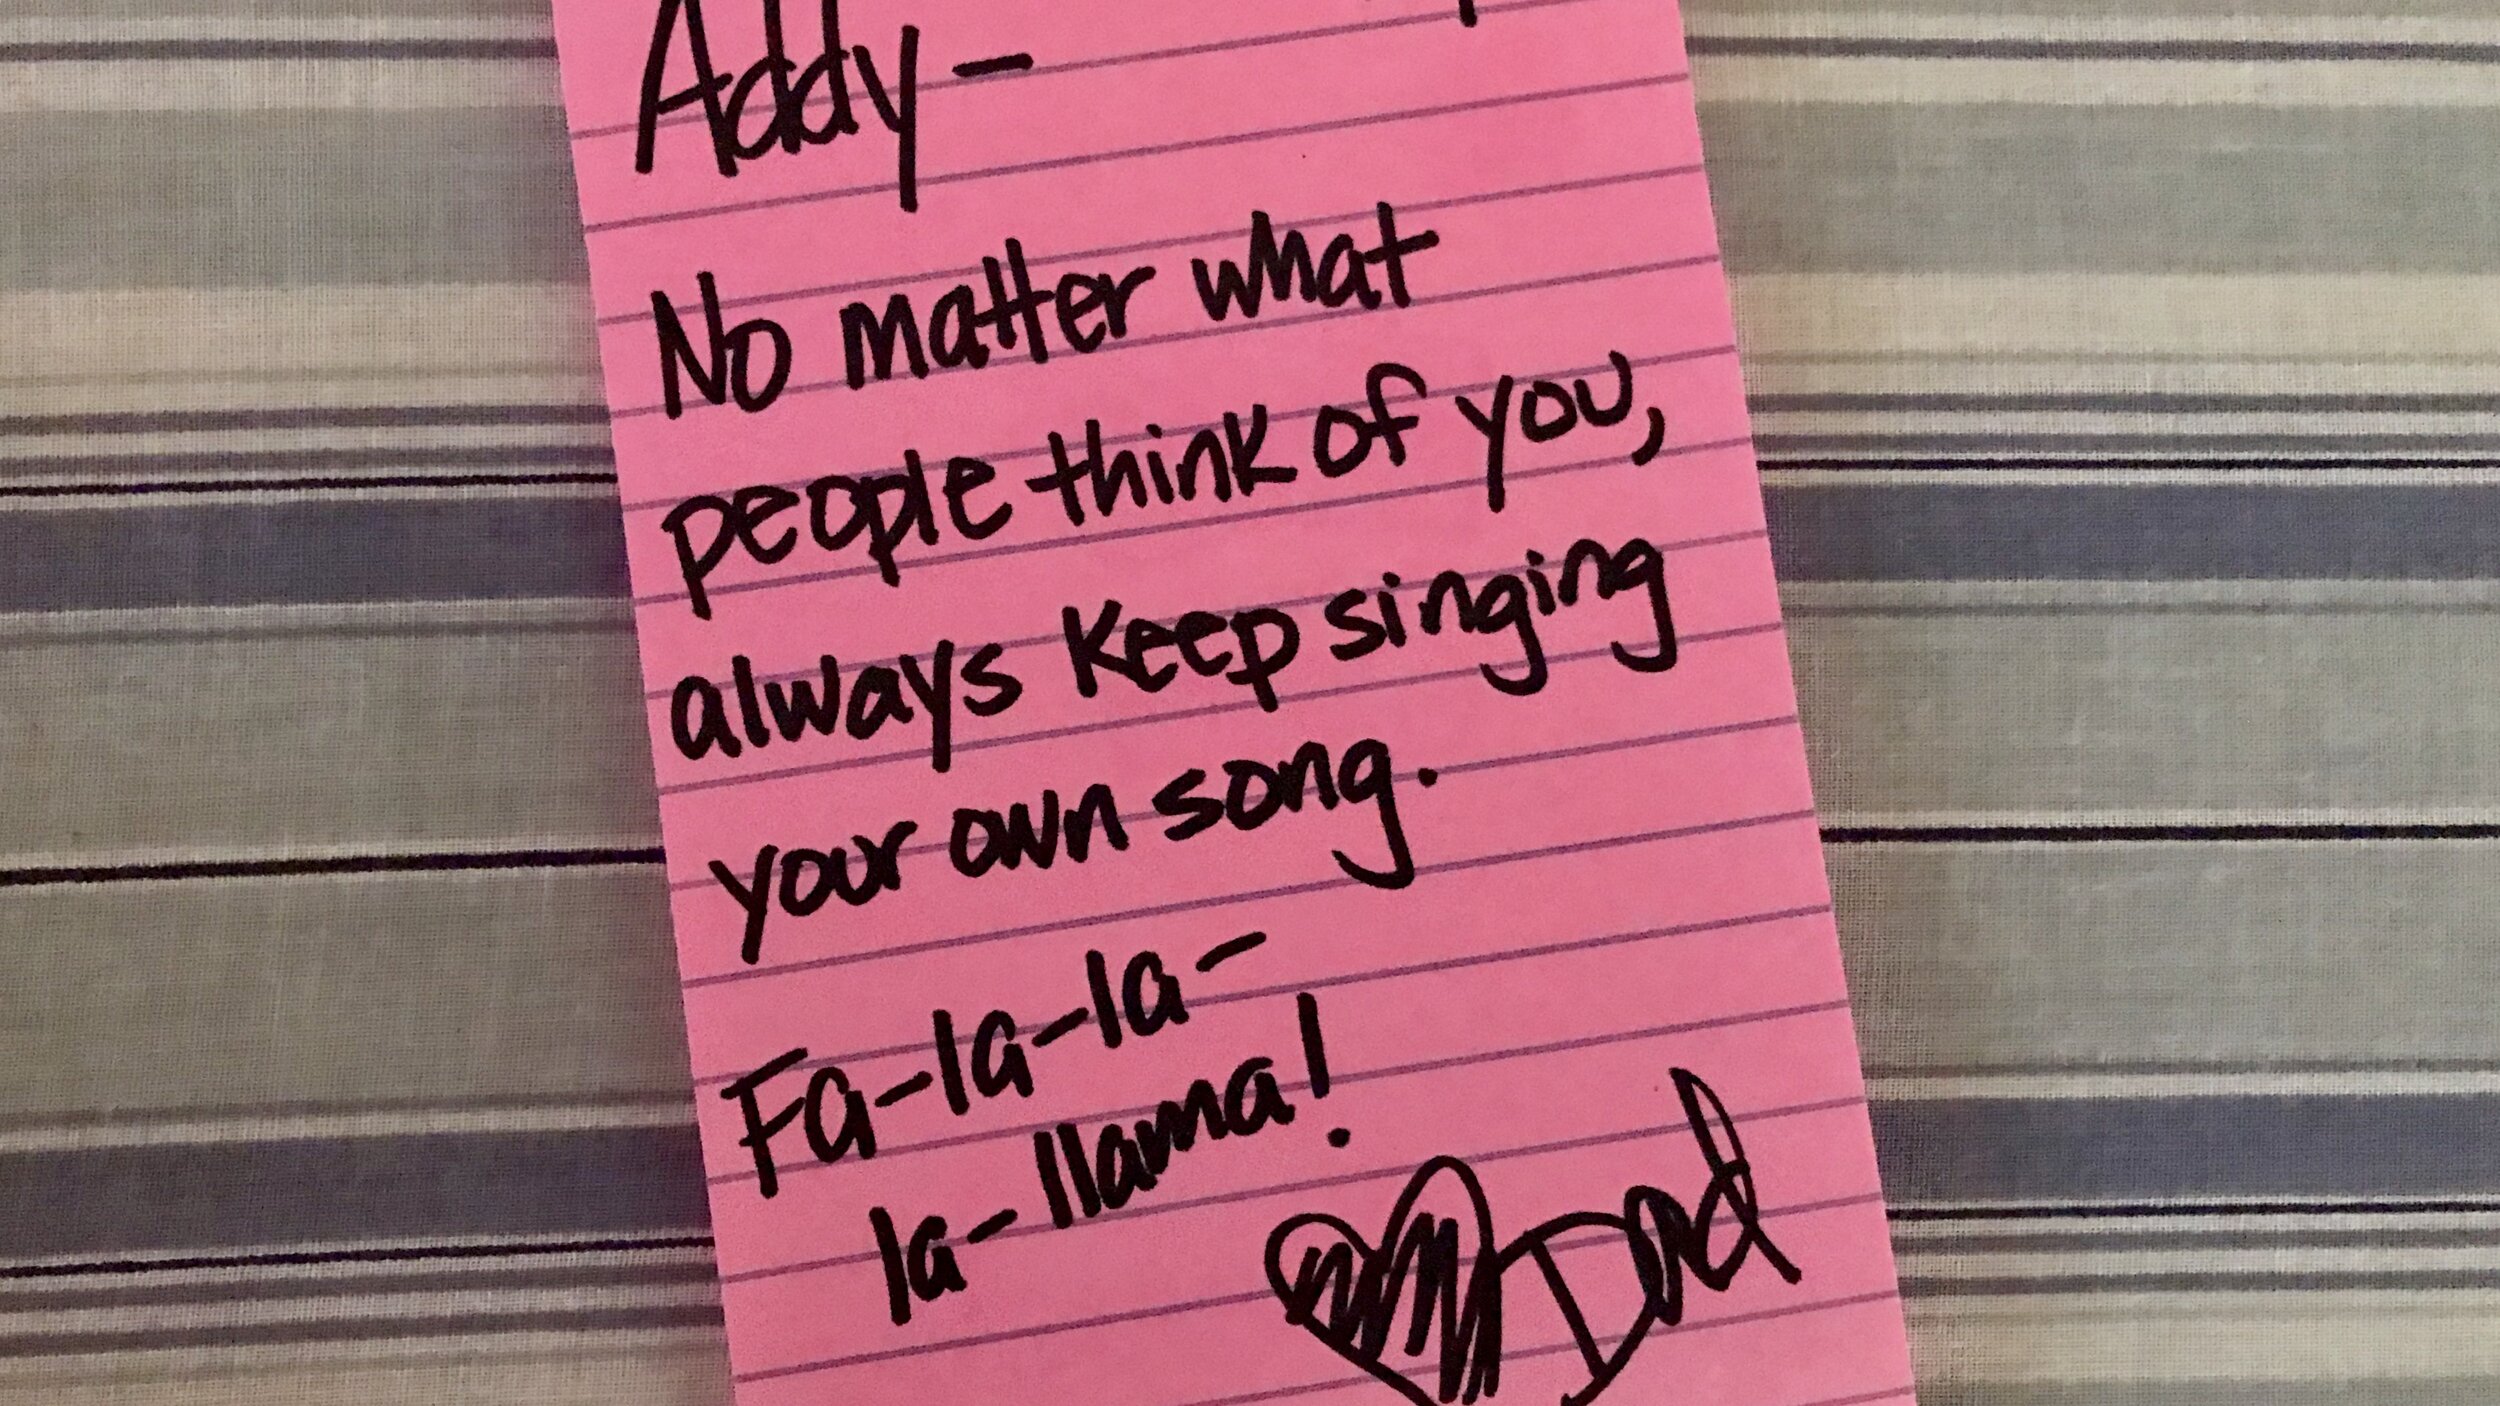 Addy -
No matter what
people think of you,
always keep singing
your own song.
Fa-la-la-
la-llama!
Dad